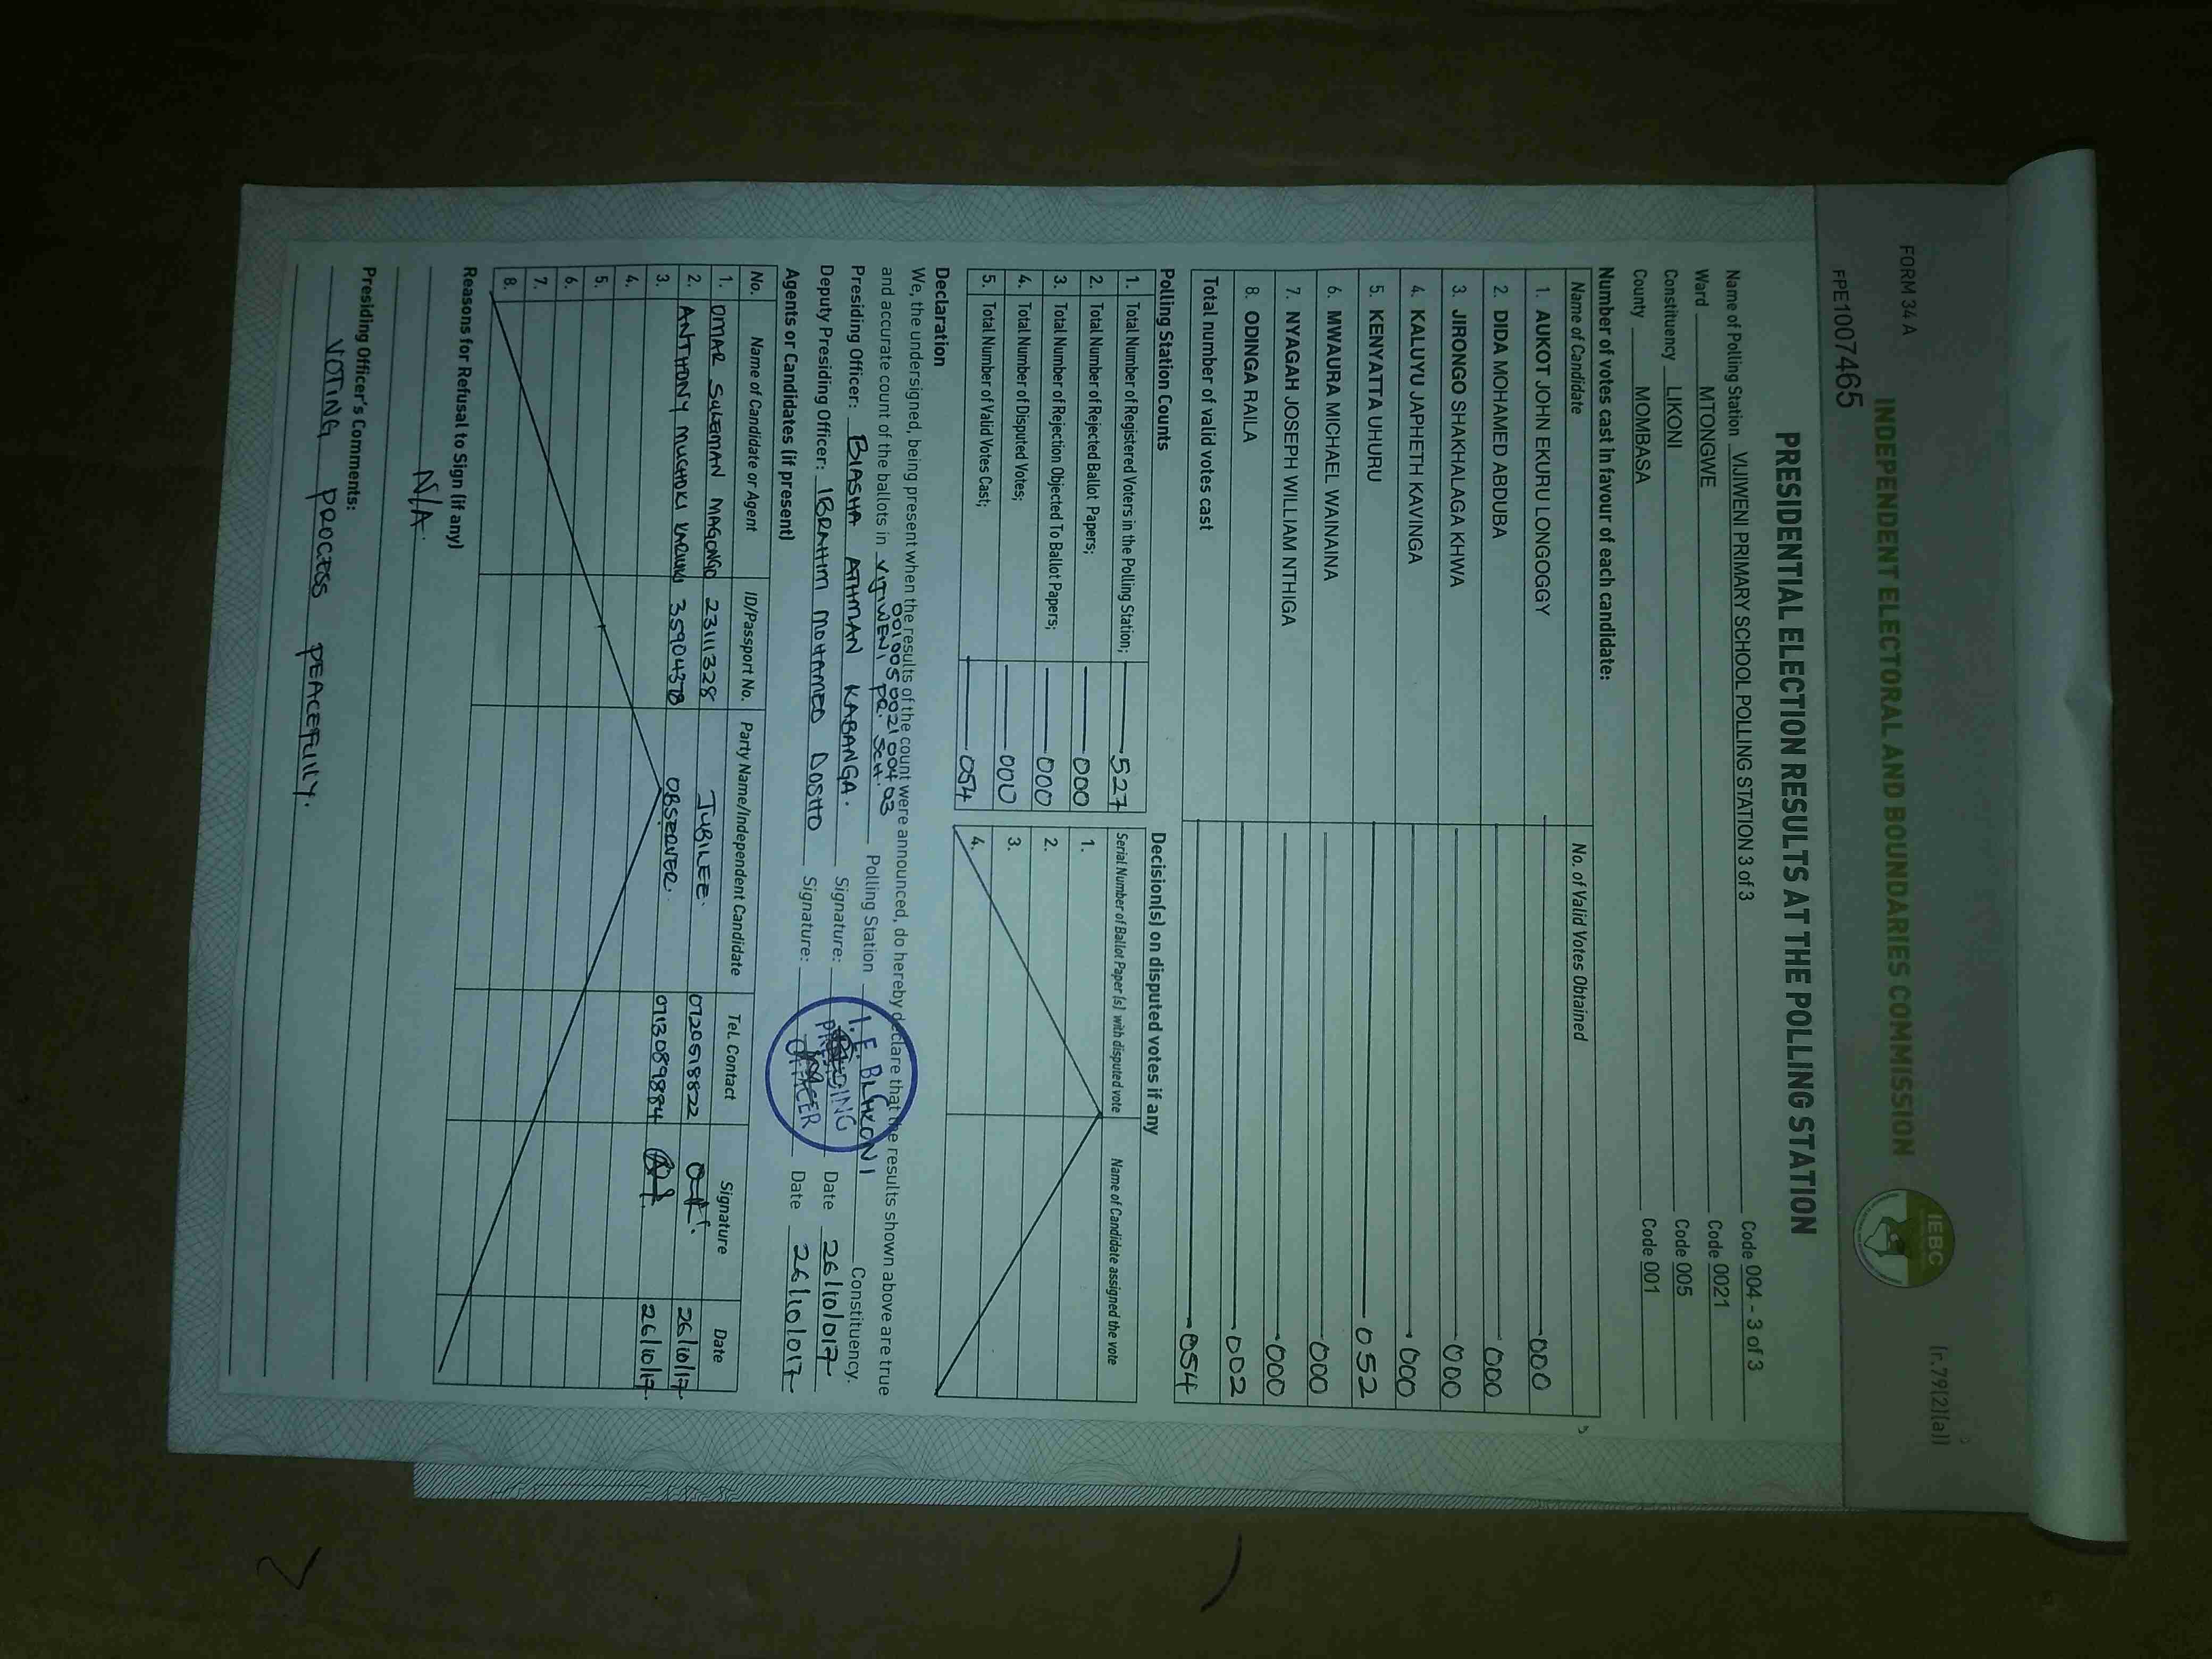 FORM 34 A
(r.79(2)(a))
INDEPENDENT ELECTORAL AND BOUNDARIES COMMISSION
IEBC
FPE1007465
PRESIDENTIAL ELECTION RESULTS AT THE POLLING STATION
Name of Polling Station VIJIWENI PRIMARY SCHOOL POLLING STATION 3 of 3 Code 004 - 3 of 3
Ward MTONGWE Code 0021
Constituency LIKONI Code 005
County MOMBASA Code 001
Number of votes cast in favour of each candidate:
Name of Candidate No. of Valid Votes Obtained
1. AUKOT JOHN EKURU LONGOGGY 000
2. DIDA MOHAMED ABDUBA 000
3. JIRONGO SHAKHALAGA KHWA 000
4. KALUYU JAPHETH KAVINGA 000
5. KENYATTA UHURU 052
6. MWAURA MICHAEL WAINAINA 000
7. NYAGAH JOSEPH WILLIAM NTHIGA 000
8. ODINGA RAILA 002
Total number of valid votes cast 054
Polling Station Counts
1. Total Number of Registered Voters in the Polling Station; 527
2. Total Number of Rejected Ballot Papers; 000
3. Total Number of Rejection Objected To Ballot Papers; 000
4. Total Number of Disputed Votes; 000
5. Total Number of Valid Votes Cast; 054
Decision(s) on disputed votes if any
Serial Number of Ballot Paper (s) with disputed vote Name of Candidate assigned the vote
1.
2.
3.
4.
Declaration
We, the undersigned, being present when the results of the count were announced, do hereby declare that the results shown above are true
001005002100403
and accurate count of the ballots in VIJIWENI PR. SCH. Polling Station LIKONI Constituency.
Presiding Officer: BIASHA ATHMAN KABANGA. Signature: Date 26/10/017
Deputy Presiding Officer: IBRAHIM MOHAMED DOSHO Signature: Date 26/10/017
PRESIDING
OFFICER
Agents or Candidates (if present)
No. Name of Candidate or Agent ID/Passport No. Party Name/Independent Candidate Tel. Contact Signature Date
1. OMAR SULEMAN MAGONGO 23111328 JUBILEE. 0720518822 26/10/17
2. ANTHONY MUCHOKI 35904378 OBSERVER. 0713089884 26/10/17
3.
4.
5.
6.
7.
8.
Reasons for Refusal to Sign (if any)
N/A.
Presiding Officer's Comments:
VOTING PROCESS PEACEFULLY.